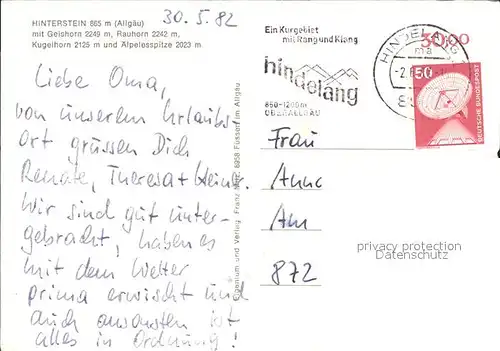 HINTERSTEIN 865 m (Allgäu)
mit Geishorn 2249 m, Rauhorn 2242 m,
Kugelhorn 2125 m und Älpelesspitze 2023 m
30. 5. 82
Liebe Oma,
von unserem Urlaubs-
ort grüssen Dich
Renate, Theresa + Heinz.
Wir sind gut unter-
gebracht, haben es
mit dem Wetter
prima erwischt und
auch ansonsten ist
alles in Ordnung!
und Verlag Franz 8958 Füssen im Allgäu
Ein Kurgebiet
mit Rang und Klang
hindelang
850-1200m
OBERALLGÄU
HINDELANG
ma
50
DEUTSCHE BUNDESPOST
Frau
Anna
Am
872
privacy protection
Datenschutz